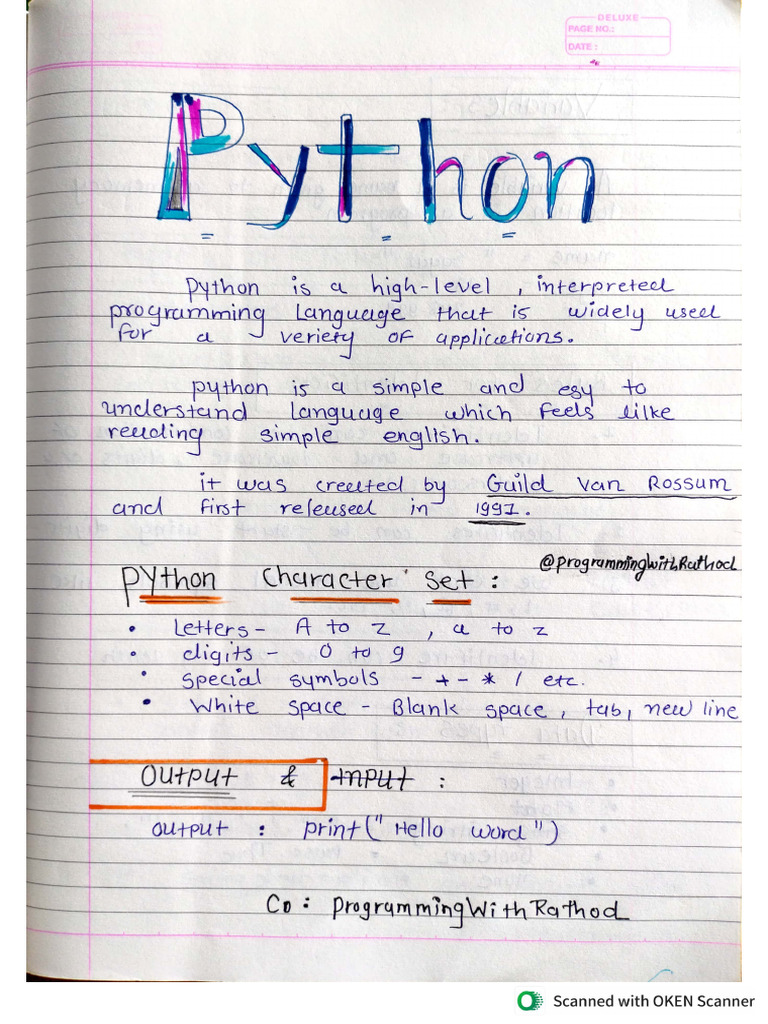 DELUXE
PAGE NO.:
DATE :
Python
Python is a high-level , interpreted
programming Language that is widely used
for a veriety of applications.
python is a simple and esy to
understand language which feels lilke
reading simple english.
it was created by Guild van Rossum
and first released in 1991.
@programmingwithRathod
Python Character Set :
• Letters - A to z , a to z
• digits - 0 to 9
• special symbols - + - * / etc.
• White space - Blank space, tab, new line
Output & Input :
output : print(" Hello word")
Co : programmingWithRathod
Scanned with OKEN Scanner